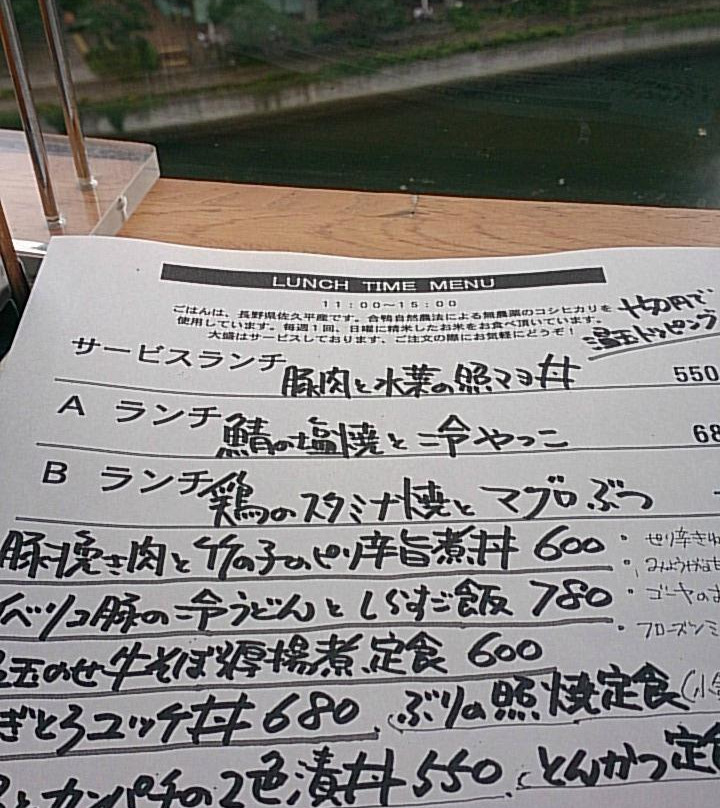 LUNCH TIME MENU
11:00~15:00
ごはんは、長野県佐久平産です。合鴨自然農法による無農薬のコシヒカリを
使用しています。毎週1回、日曜に精米したお米をお食べ頂いています。
大盛はサービスしております、ご注文の際にお気軽にどうぞ!
+50円で
温玉トッピング
サービスランチ 豚肉と水菜の照マヨ丼 550
A ランチ 鯖の塩焼と冷やっこ 68
B ランチ 鶏のスタミナ焼と マグロぶつ
豚挽き肉と竹の子のピリ辛旨煮丼 600
イベリコ豚の冷うどんとしらすご飯 780
玉のせ牛そぼろ厚揚煮定食 600
ぎとろユッケ丼 680 ぶりの照焼定食
とカンパチの2色漬丼 550 とんかつ定食